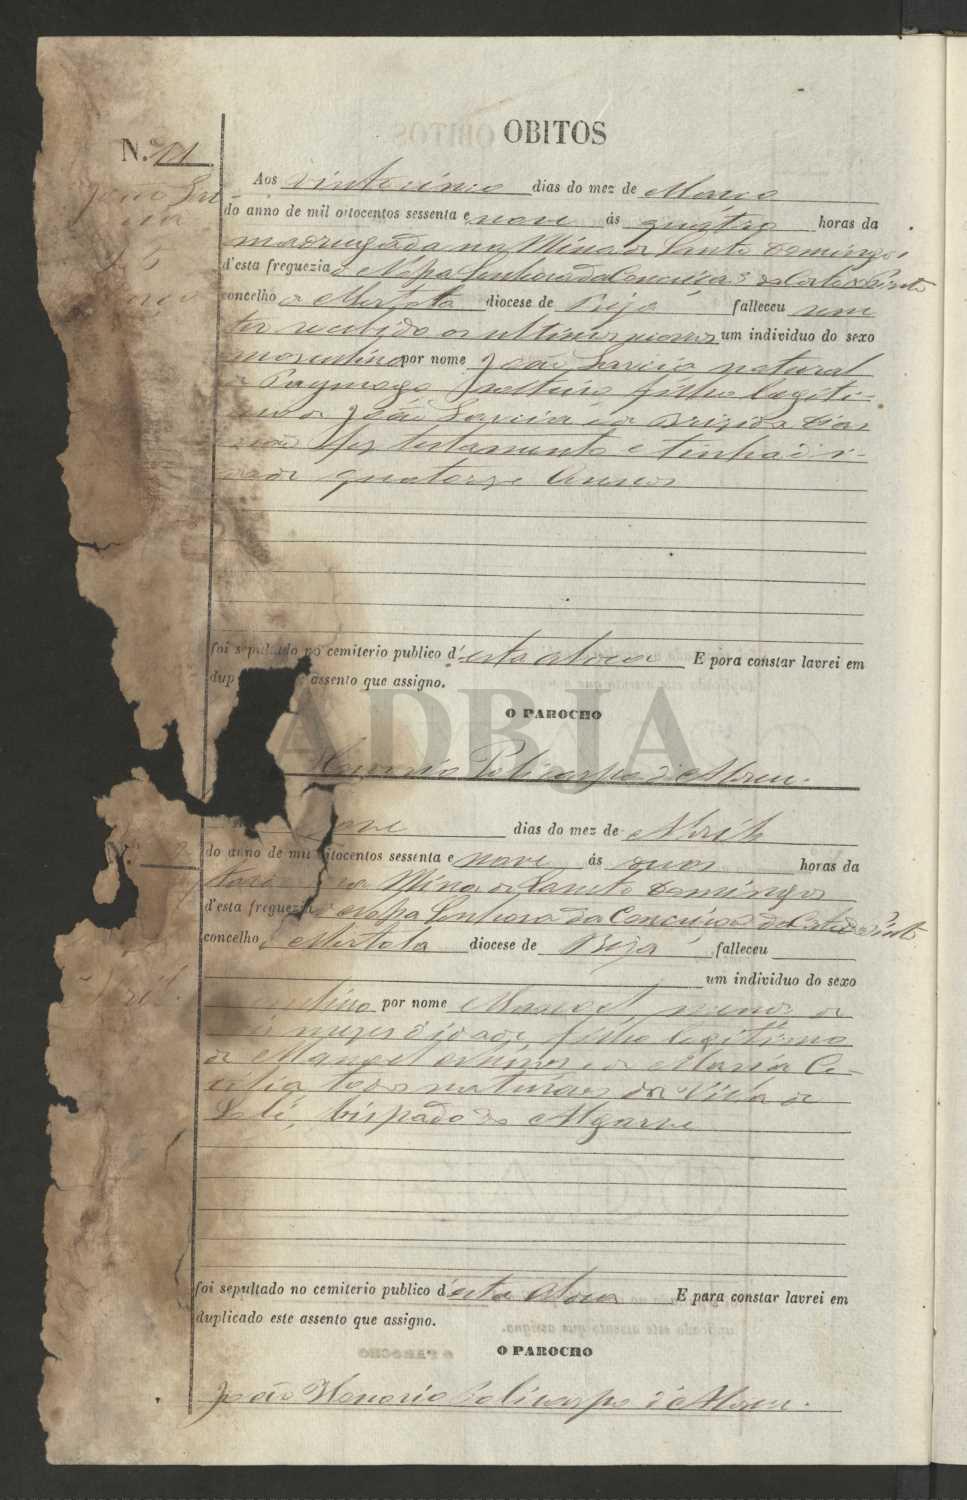 OBITOS
N. 11
João Gar-
cia
Aos vinte cinco dias do mez de Março
do anno de mil oitocentos sessenta e nove ás quatro horas da
madrugada na Mina de Santo Domingos
d'esta freguezia de Nossa Senhora da Conceição da Corte do Pinto
concelho de Mertola diocese de Beja falleceu sem
ter recebido os ultimos um individuo do sexo
masculino por nome João Garcia natural
de Paymogo solteiro filho legiti-
mo de João Garcia e de Brizida Dias
não fez testamento e tinha d'i-
dade quatorze annos
foi sepultado no cemiterio publico d'esta aldeia E para constar lavrei em
dup assento que assigno.
O PAROCHO
Honorio Policarpo d'Abreu.
ADBJA
nove dias do mez de Abril
do anno de mil oitocentos sessenta e nove ás duas horas da
tarde na Mina de Santo Domingos
d'esta freguezia de Nossa Senhora da Conceição da Corte do Pinto
concelho de Mertola diocese de Beja falleceu
um individuo do sexo
por nome Manoel, menor de
mezes d'idade, filho legitimo
de Manoel e de Maria Ce-
cilia todos naturaes da Villa de
Lolé, bispado do Algarve
foi sepultado no cemiterio publico d'esta aldeia E para constar lavrei em
duplicado este assento que assigno.
O PAROCHO
João Honorio Policarpo d'Abreu.